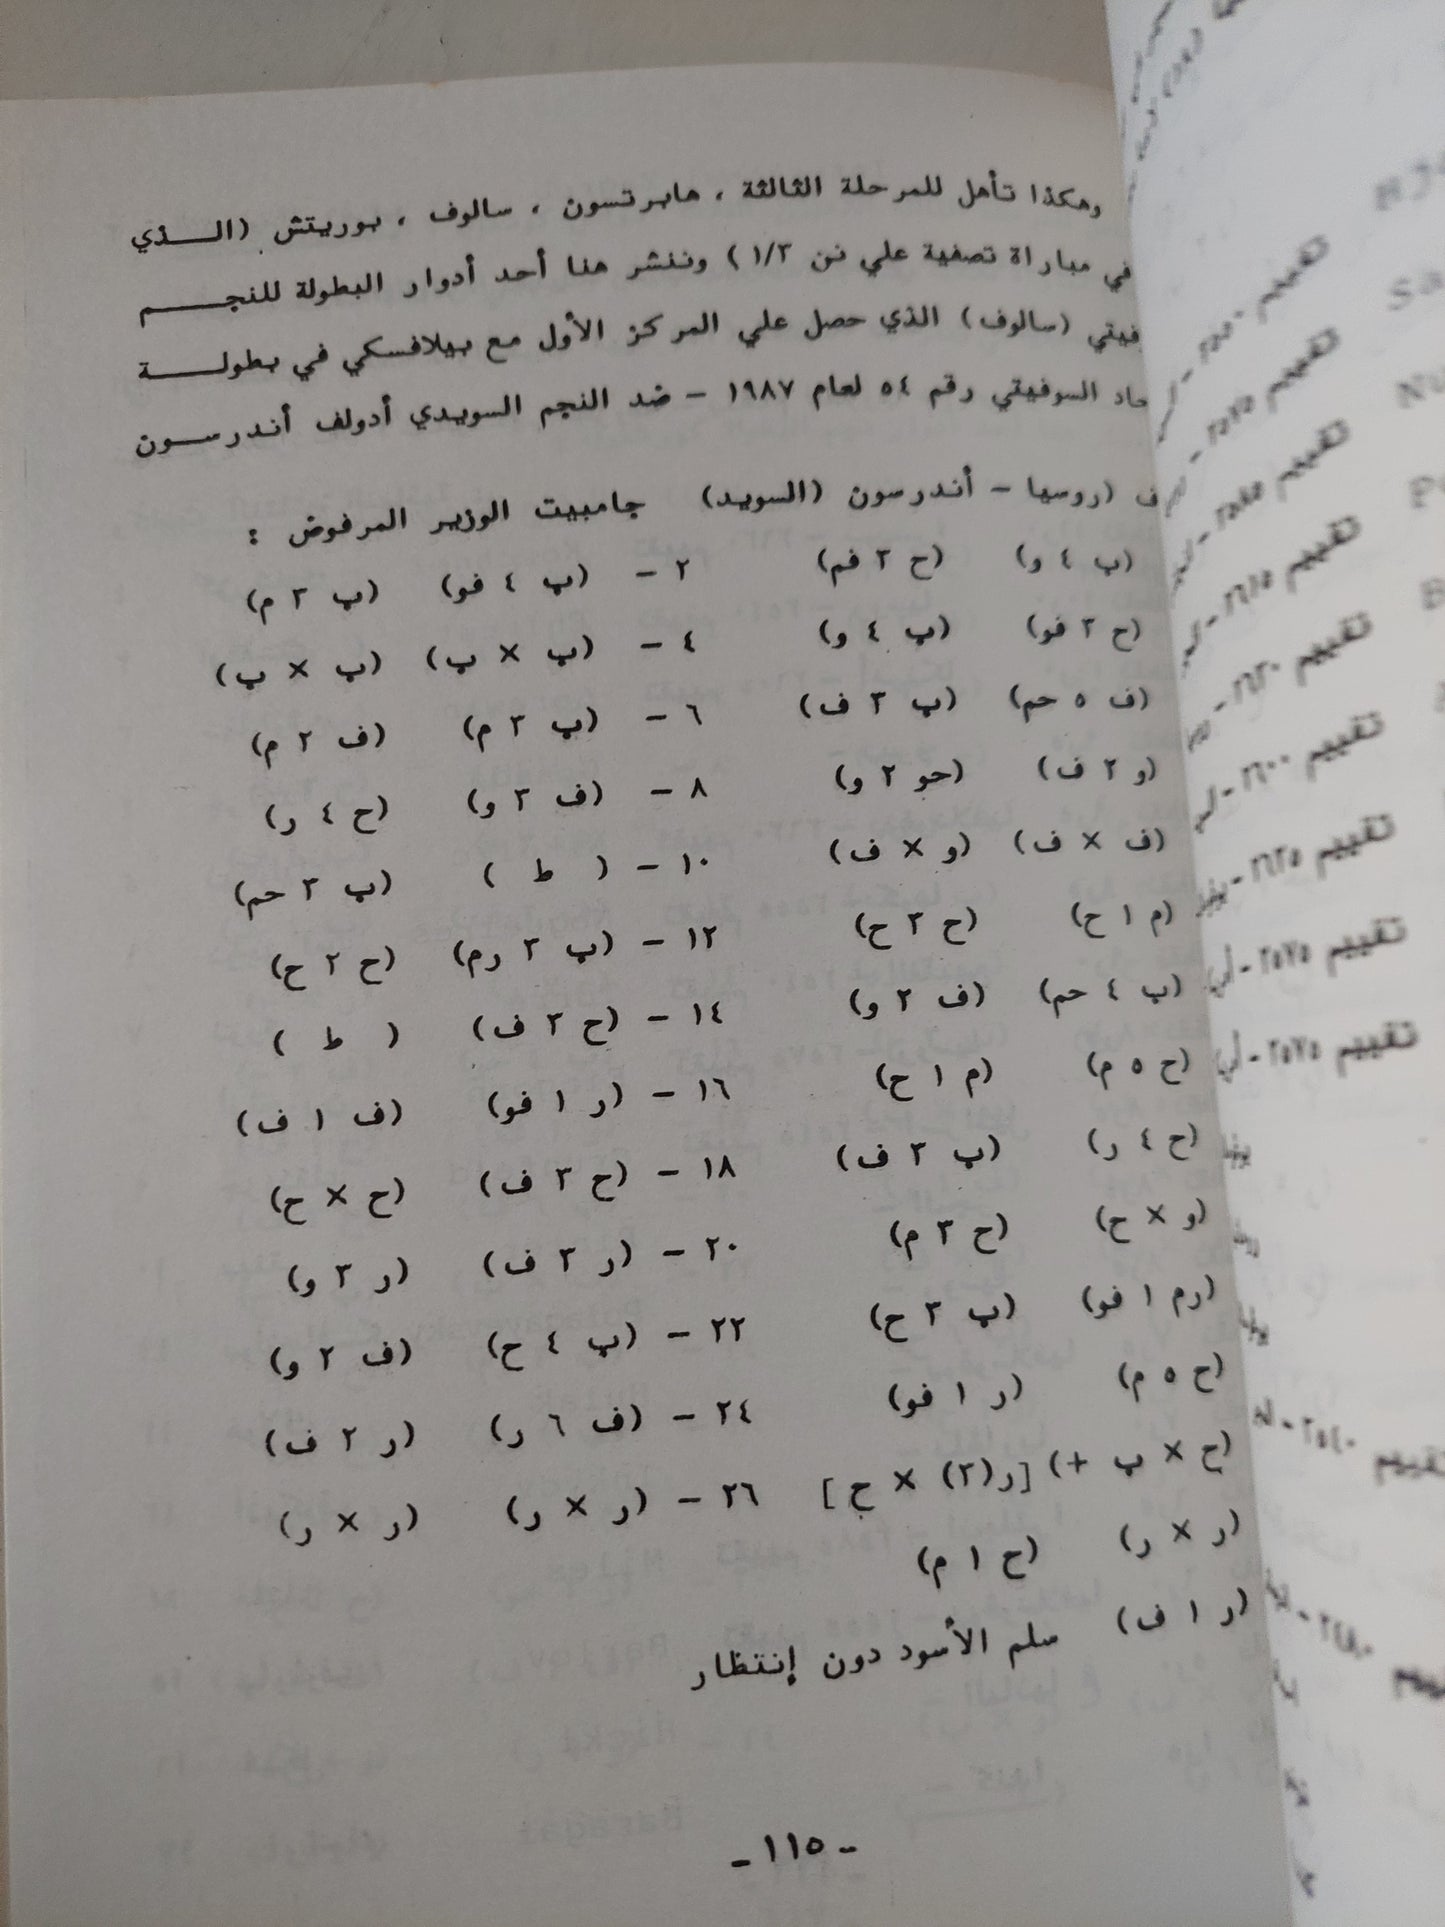 وهكذا تأهل للمرحلة الثالثة ، هابرتسون ، سالوف ، بوريتش (الــــذي
في مباراة تصفية علي نن ١/٣ ) وننشر هنا أحد أدوار البطولة للنجــــم
فيتي (سالوف) الذي حصل علي المركز الأول مع بيلافسكي في بطولــــة
حاد السوفيتي رقم ٥٤ لعام ١٩٨٧ - ضد النجم السويدي أدولف أندرســـون
ف (روسيا - أندرسون (السويد) جامبيت الوزير المرفوض :
(ب ٤ و) (ح ٣ فم) ٢ - (ب ٤ فو) (ب ٣ م)
(ح ٣ فو) (ب ٤ و) ٤ - (ب × ب) (ب × ب)
(ف ٥ حم) (ب ٣ ف) ٦ - (ب ٣ م) (ف ٢ م)
(و ٢ ف) (حو ٢ و) ٨ - (ف ٣ و) (ح ٤ ر)
(ف × ف) (و × ف) ١٠ - ( ط ) (ب ٣ حم)
(م ١ ح) (ح ٣ ح) ١٢ - (ب ٣ رم) (ح ٢ ح)
(ب ٤ حم) (ف ٢ و) ١٤ - (ح ٣ ف) ( ط )
(ح ٥ م) (م ١ ح) ١٦ - (ر ١ فو) (ف ١ ف)
(ح ٤ ر) (ب ٣ ف) ١٨ - (ح ٣ ف) (ح × ح)
(و × ح) (ح ٣ م) ٢٠ - (ر ٣ ف) (ر ٣ و)
(رم ١ فو) (ب ٣ ح) ٢٢ - (ب ٤ ح) (ف ٢ و)
(ح ٥ م) (ر ١ فو) ٢٤ - (ف ٦ ر) (ر ٢ ف)
(ح × ب +) [ر(٣) × ح] ٢٦ - (ر × ر) (ر × ر)
(ر × ر) (ح ١ م)
(ر ١ ف) سلم الأسود دون إنتظار
- ١١٥ -
تقييم
تقييم
تقييم
تقييم ٢٦١٥
تقييم ٢٦٣٠
تقييم ٢٦٠٠
تقييم ٢٦٢٥
تقييم ٢٥٧٥
تقييم ٢٥٧٥